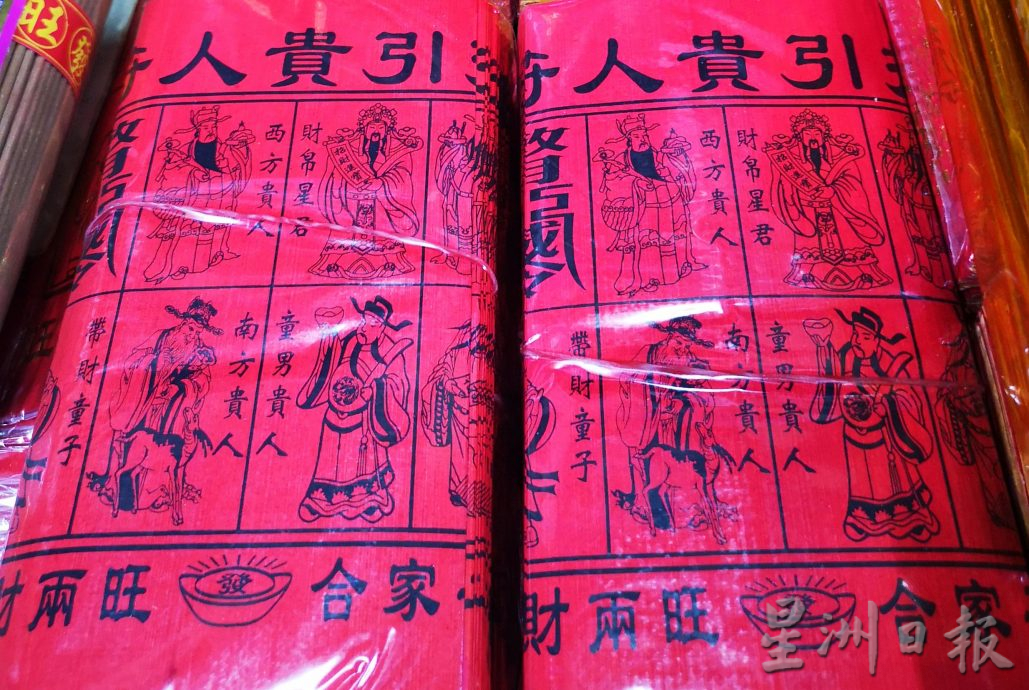 旺發
引貴人符
財帛星君
西方貴人
童男貴人
南方貴人
帶財童子
財兩旺 發 合家
引貴人符
財帛星君
西方貴人
童男貴人
南方貴人
帶財童子
財兩旺 發 合家
星洲日報